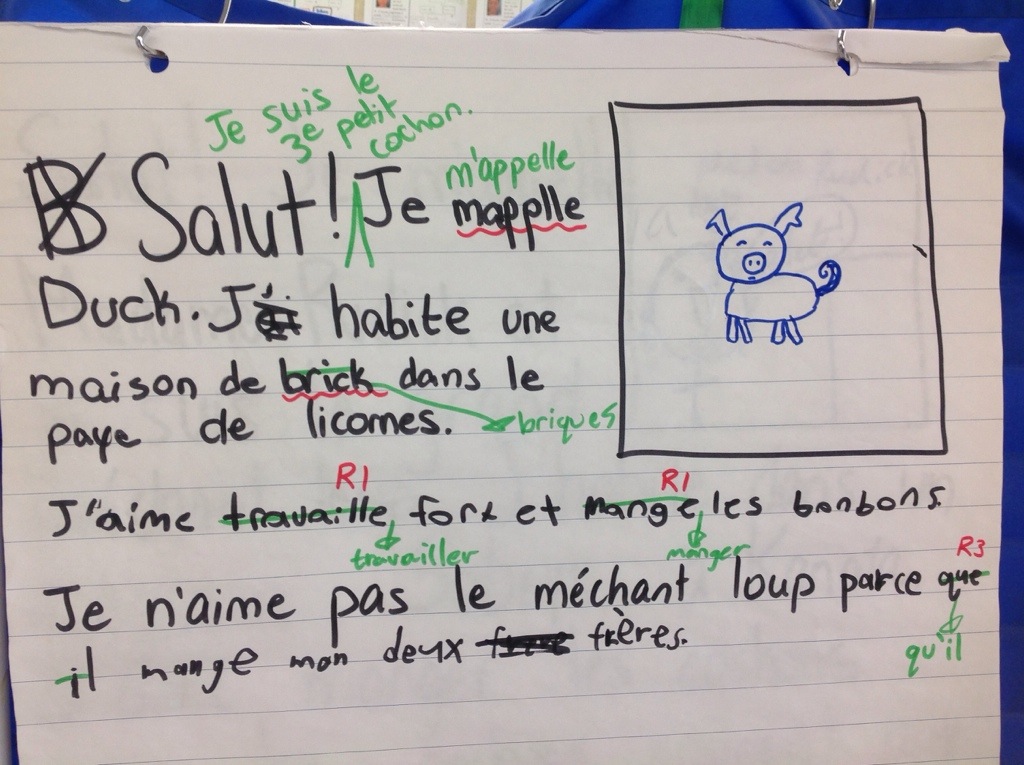 Je suis le
3e petit
cochon.
m'appelle
B Salut! Je mapplle
Duck. J' habite une
maison de brick dans le
briques
paye de licornes.
R1 R1
J'aime travaille fort et mange les bonbons.
travailler manger
R3
Je n'aime pas le méchant loup parce que
qu'il
il mange mon deux frères.